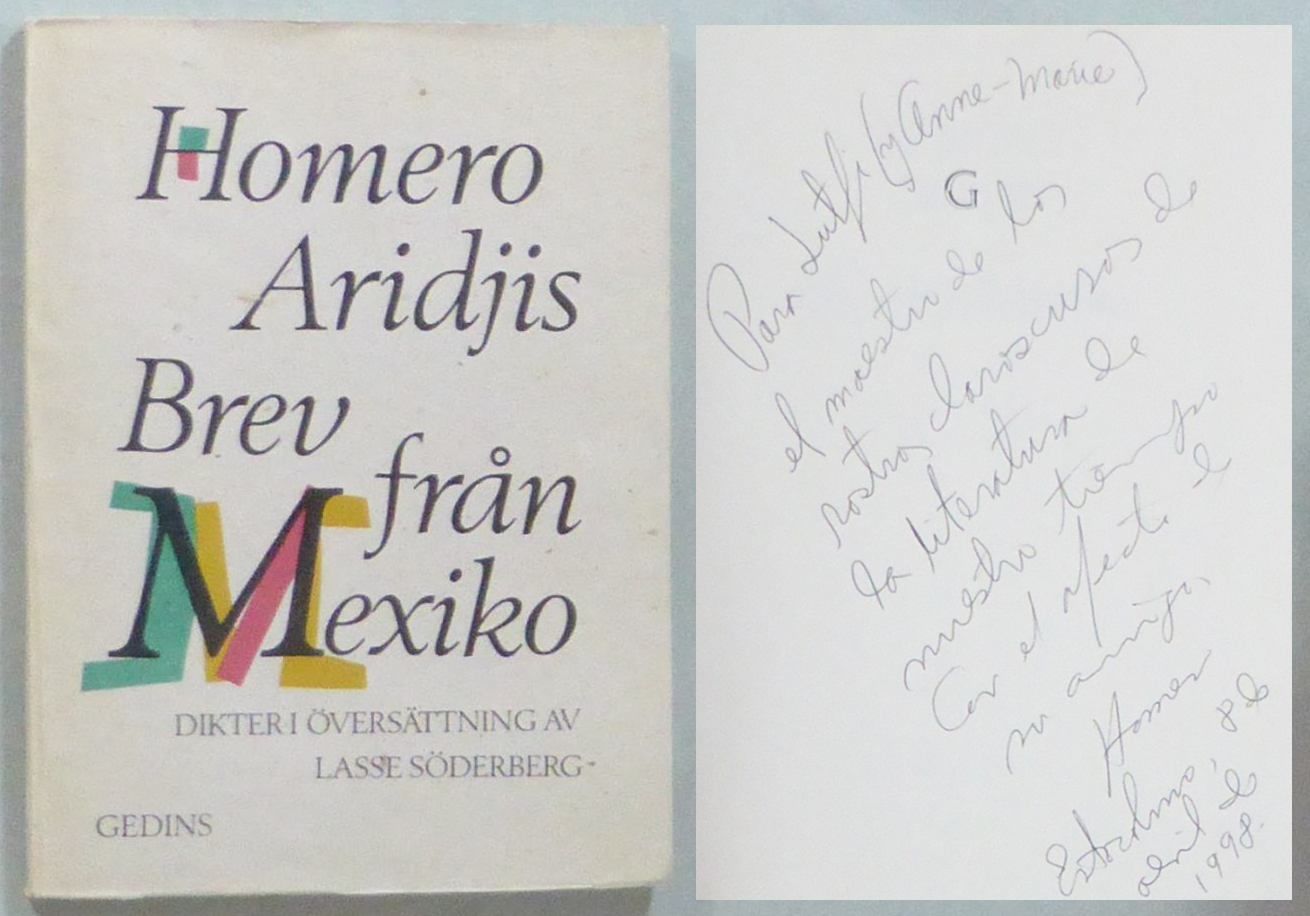 Homero
Aridjis
Brev
från
Mexiko
DIKTER I ÖVERSÄTTNING AV
LASSE SÖDERBERG
GEDINS
Para Lutfi (y Anne-Marie)
G
el maestro de los
rostros claroscuros de
la literatura de
nuestro tiempo
Con el afecto de
su amigo,
Homero
Estocolmo, 8 de
abril de
1998.